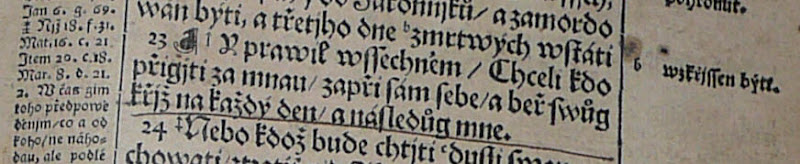 Jan 6. g. 69.
Niž 18. f. 31.
Mat. 16. c. 21.
Item 20. c. 18.
Mar. 8. d. 21.
2. W čas gim
toho předpowě
děnjm/ co a od
koho/ ne náho-
dau, ale podlé
wán býti, a třetjho dne zmrtwých wstáti
23 ¶ Y prawil wssechněm/ Chceli kdo
přigjti za mnau/ zapři sám sebe/ a beř swůg
křjž na každý den/ a následůg mne.
24 Nebo kdož bude chtjti dussi
b wzkřjssen býti.